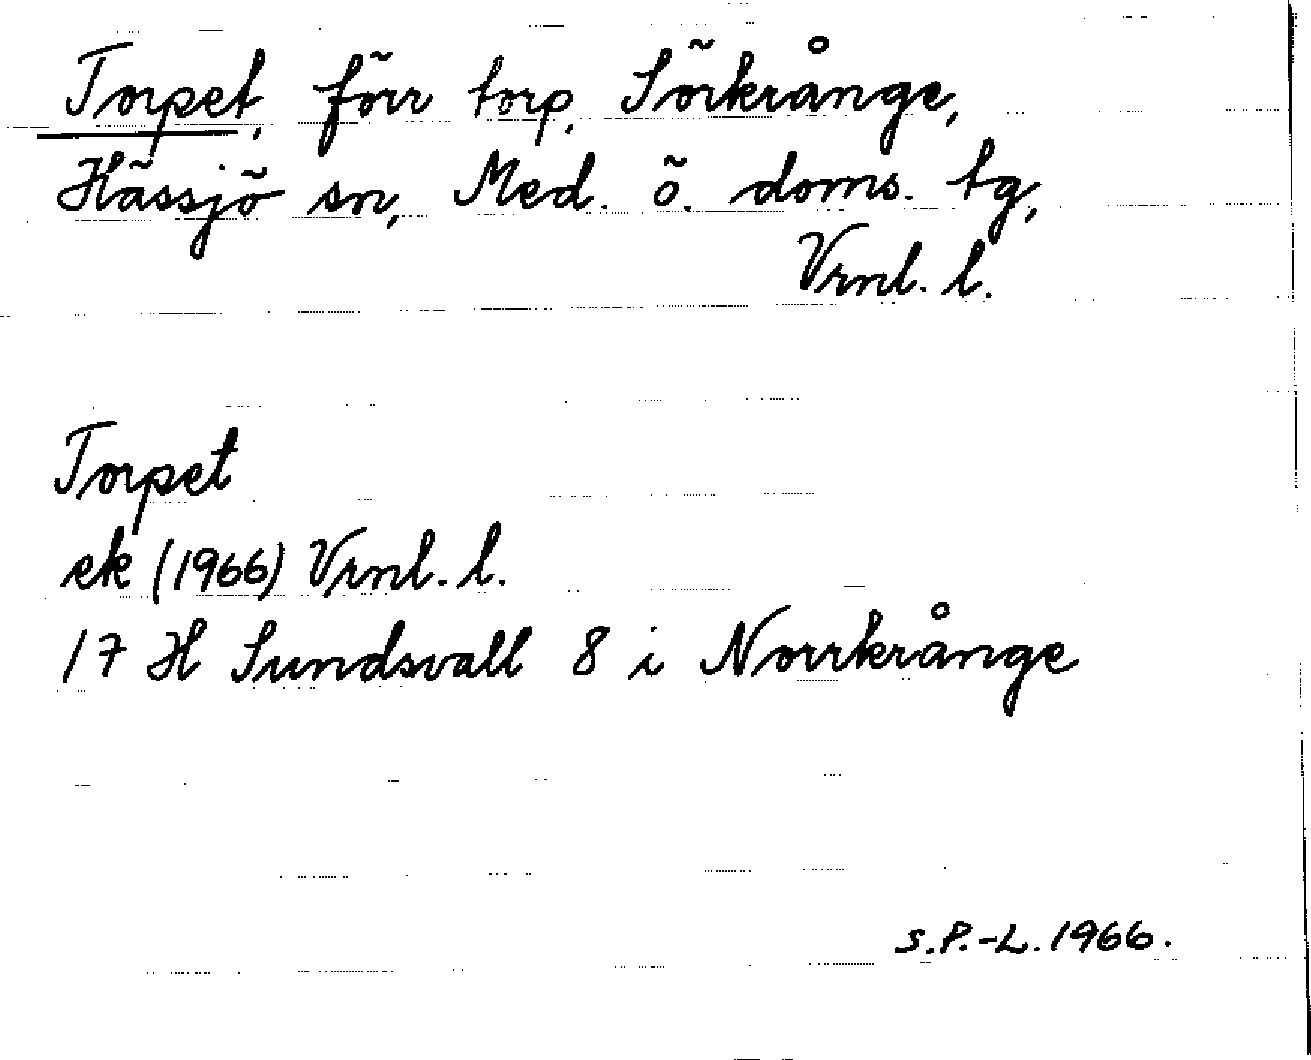 Torpet, förr torp, Sörkrånge,
Hässjö sn, Med. ö. doms. tg,
Vrnl. l.
Torpet
ek (1966) Vrnl. l.
17 H Sundsvall 8 i Norrkrånge
S.P.-L. 1966.